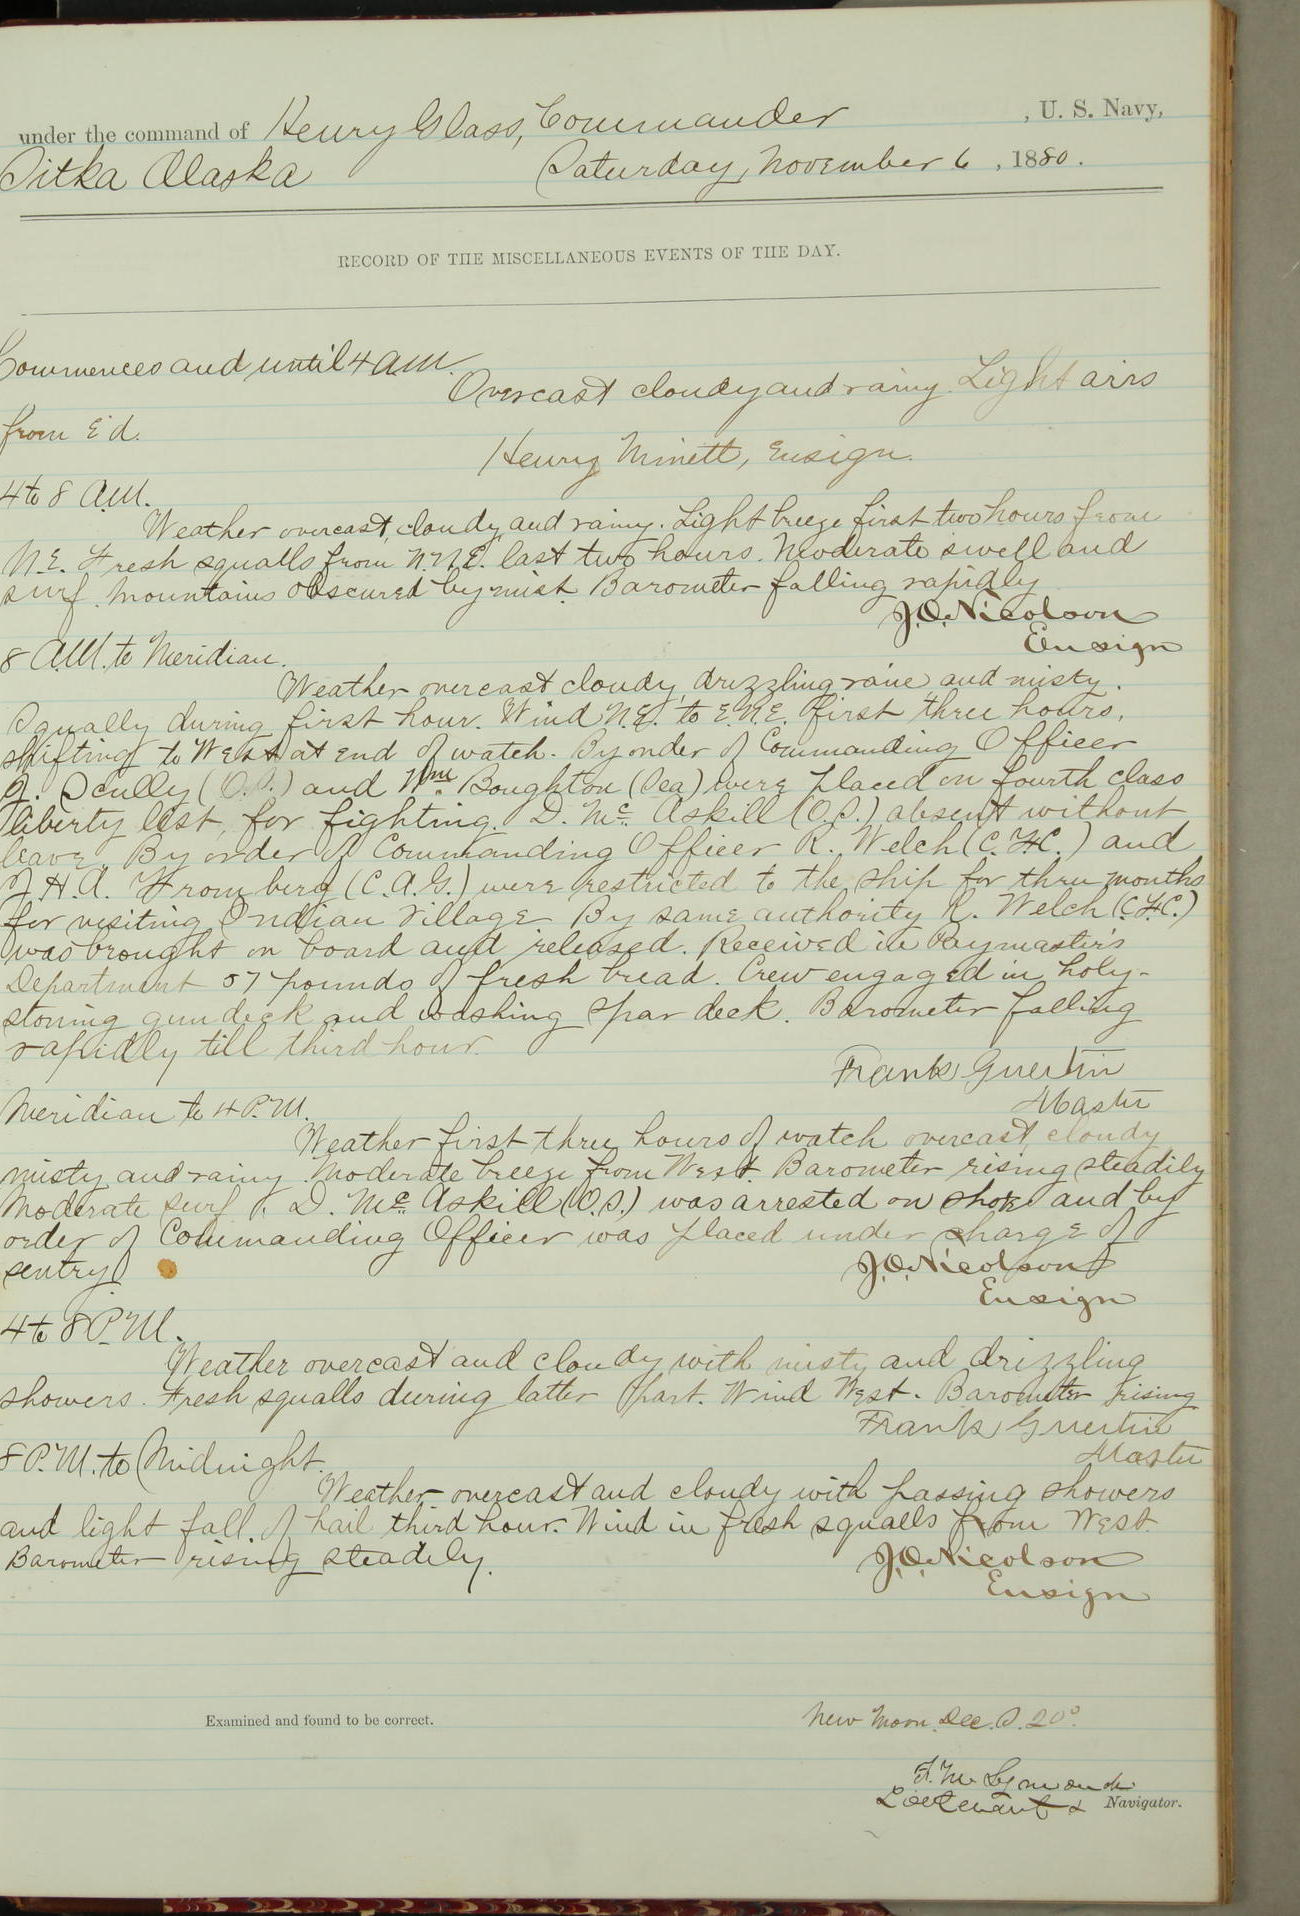 under the command of Henry Glass, Commander , U. S. Navy,
Sitka Alaska Saturday, November 6 , 1880.
RECORD OF THE MISCELLANEOUS EVENTS OF THE DAY.
Commences and until 4 A.M.
Overcast cloudy and rainy. Light airs
from E'd.
Henry Minett, Ensign.
4 to 8 A.M.
Weather overcast, cloudy and rainy. Light breeze first two hours from
N.E. Fresh squalls from N.N.E. last two hours. Moderate swell and
surf. Mountains obscured by mist. Barometer falling rapidly
J.O. Nicolson
Ensign
8 A.M. to Meridian.
Weather overcast cloudy, drizzling rain and misty.
Squally during first hour. Wind N.E. to E.N.E. first three hours,
shifting to West at end of watch. By order of Commanding Officer
J. Scully (O.S.) and Wm. Boughton (Sea) were placed on fourth class
liberty list, for fighting. D. Mc. Askill (O.S.) absent without
leave. By order of Commanding Officer R. Welch (C.H.C.) and
H.A. Fromberg (C.A.G.) were restricted to the ship for three months
for visiting Indian Village. By same authority R. Welch (C.H.C.)
was brought on board and released. Received in Paymaster's
Department 57 pounds of fresh bread. Crew engaged in holy-
stoning gun deck and washing spar deck. Barometer falling
rapidly till third hour.
Frank Guertin
Master
Meridian to 4 P.M.
Weather first three hours of watch overcast, cloudy
misty and rainy. Moderate breeze from West. Barometer rising steadily
Moderate surf. D. Mc. Askill (O.S.) was arrested on shore and by
order of Commanding Officer was placed under charge of
sentry.
J.O. Nicolson
Ensign
4 to 8 P.M.
Weather overcast and cloudy with misty and drizzling
showers. Fresh squalls during latter part. Wind West. Barometer rising
Frank Guertin
Master
8 P.M. to Midnight.
Weather overcast and cloudy with passing showers
and light fall of hail third hour. Wind in fresh squalls from West.
Barometer rising steadily.
J.O. Nicolson
Ensign
Examined and found to be correct.
New Moon. Dec. S. 20°.
F. M. Symonds
Lieutenant & Navigator.